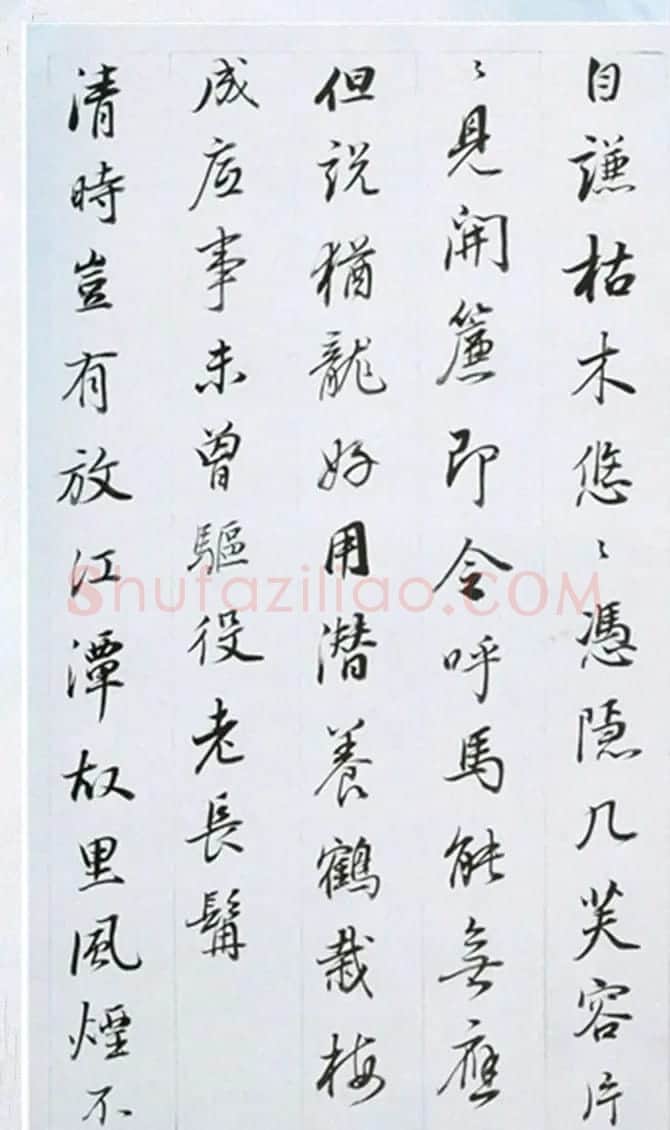 自謙枯木悠々憑隱几芙容片
々見開簾即令呼馬能無應
但説猶龍好用潛養鶴栽梅
成底事未曾驅役老長髯
清時豈有放江潭故里風煙不
Shufaziliao.COM